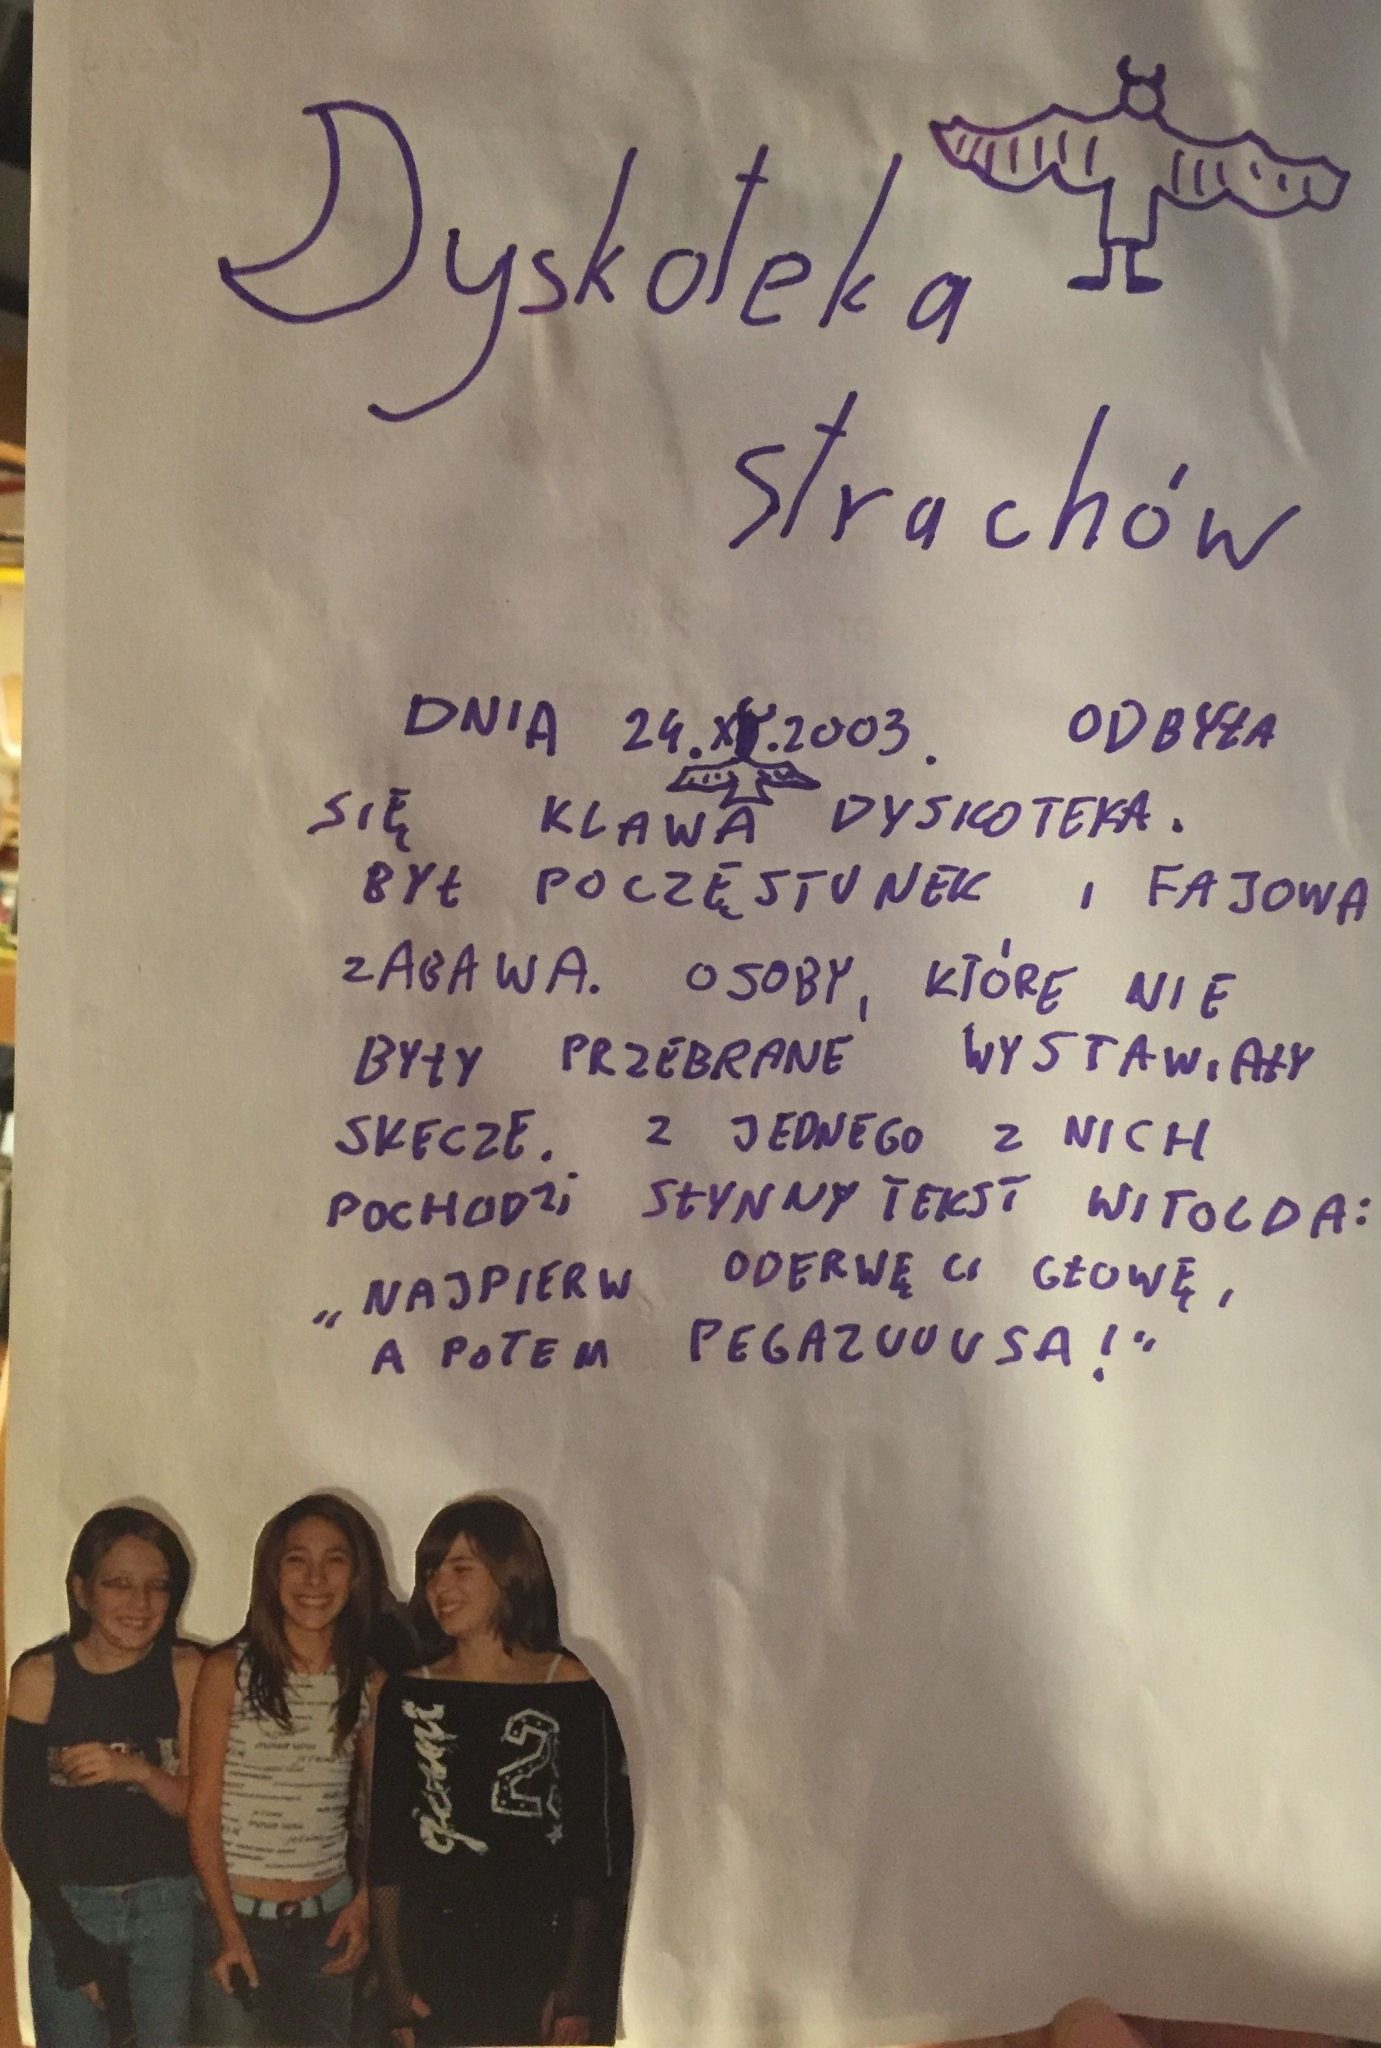 Dyskoteka
strachów
DNIA 24. .2003. ODBYŁA
SIĘ KLAWA DYSKOTEKA.
BYŁ POCZĘSTUNEK I FAJOWA
ZABAWA. OSOBY, KTÓRE NIE
BYŁY PRZEBRANE WYSTAWIAŁY
SKECZE. Z JEDNEGO Z NICH
POCHODZI SŁYNNY TEKST WITOLDA:
„NAJPIERW ODERWĘ CI GŁOWĘ,
A POTEM PEGAZUUUSA!"